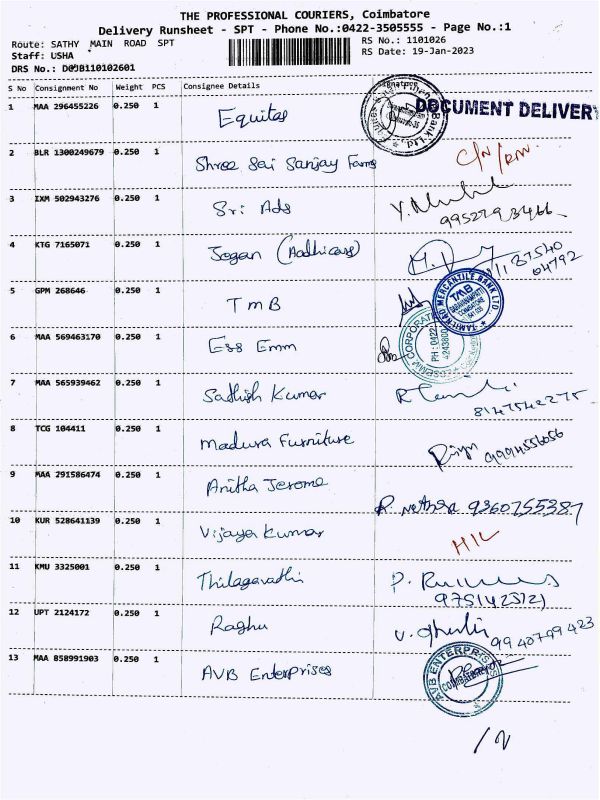 THE PROFESSIONAL COURIERS, Coimbatore
Delivery Runsheet - SPT - Phone No.:0422-3505555 - Page No.:1
Route: SATHY MAIN ROAD SPT
RS No.: 1101026
Staff: USHA
RS Date: 19-Jan-2023
DRS No.: D0JB110102601
S No Consignment No Weight PCS Consignee Details
1 MAA 296455226 0.250 1 Equitas DOCUMENT DELIVERY
2 BLR 1300249679 0.250 1 Shree Sai Sanjay Farms C/N/RW.
3 IXM 502943276 0.250 1 Sri Ads
4 KTG 7165071 0.250 1 Jogan (Aadhicass)
04792
5 GPM 268646 0.250 1 TMB
TAMILNAD MERCANTILE BANK LTD.
TMB
6 MAA 569463170 0.250 1 Ess Emm
PH: 0422
7 MAA 565939462 0.250 1 Sathish Kumar
8147542275
8 TCG 104411 0.250 1 Madura Furniture
9994556056
9 MAA 291586474 0.250 1 Anitha Jerome
9360755387
10 KUR 528641139 0.250 1 Vijaya Kumar
11 KMU 3325001 0.250 1 Thilagavathi
12 UPT 2124172 0.250 1 Raghu
9940799423
13 MAA 858991903 0.250 1 AVB Enterprises
AVB ENTERPRISES
COIMBATORE